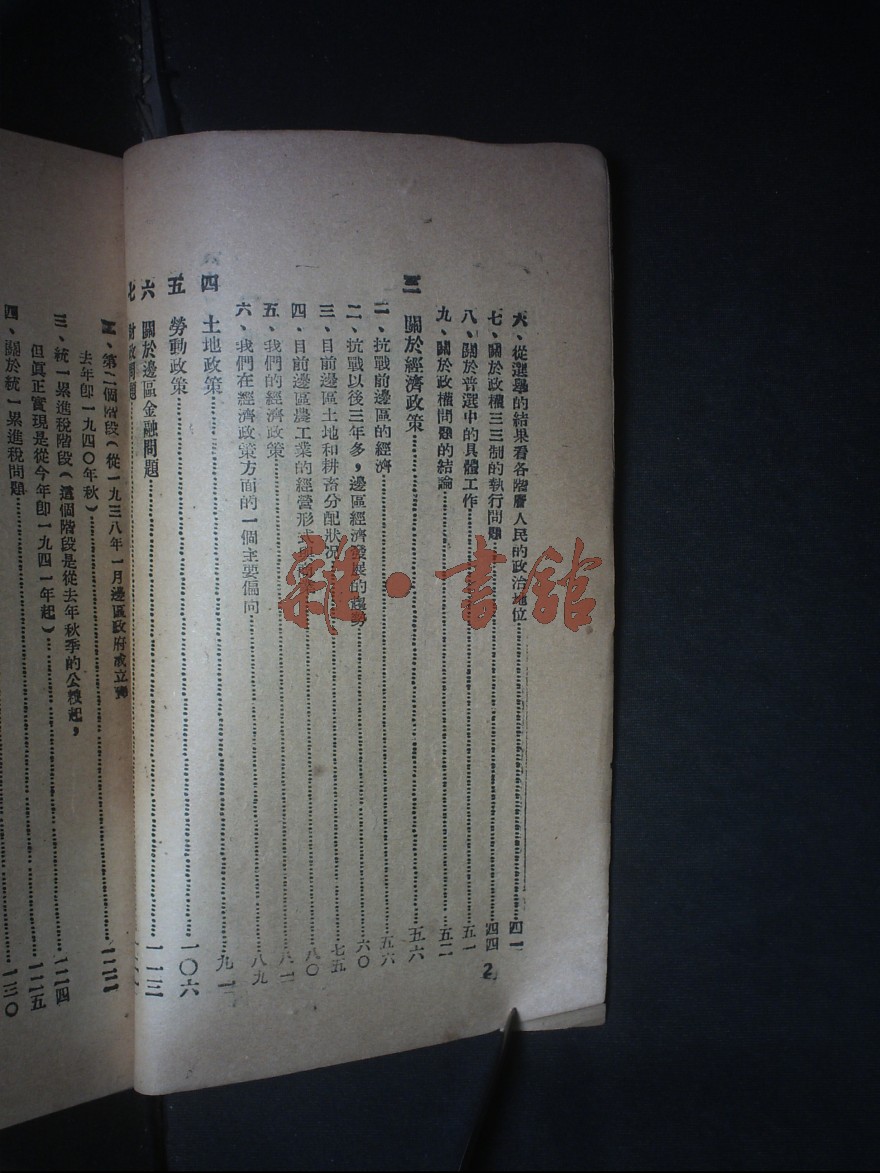 六、從選舉的結果看各階層人民的政治地位……四一
七、關於政權三三制的執行問題……四四
八、關於普選中的具體工作……五一
九、關於政權問題的結論……五二
三 關於經濟政策……五六
一、抗戰前邊區的經濟……五六
二、抗戰以後三年多，邊區經濟發展的趨勢……六〇
三、目前邊區土地和耕畜分配狀況……七五
四、目前邊區農工業的經營形式……八〇
五、我們的經濟政策……八一
六、我們在經濟政策方面的一個主要偏向……八九
四 土地政策……九一
五 勞動政策……一〇六
六 關於邊區金融問題……一一三
七 財政問題……
二、第二個階段（從一九三八年一月邊區政府成立
去年卽一九四〇年秋）……一二二
三、統一累進稅階段（這個階段是從去年秋季的公糧起，……一二四
但眞正實現是從今年卽一九四一年起）……一二五
四、關於統一累進稅問題……一三〇
2
雜·書館